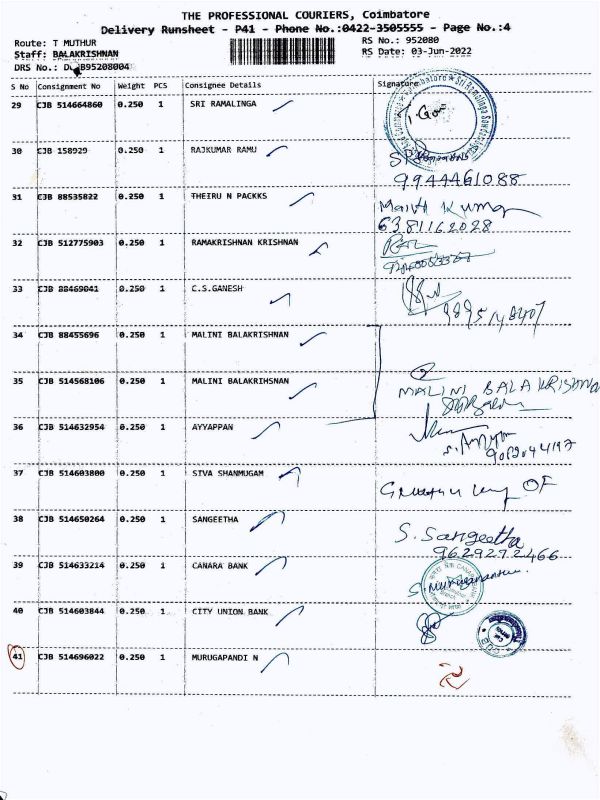 THE PROFESSIONAL COURIERS, Coimbatore
Delivery Runsheet - P41 - Phone No.:0422-3505555 - Page No.:4
Route: T MUTHUR
RS No.: 952080
Staff: BALAKRISHNAN
RS Date: 03-Jun-2022
S No Consignment No Weight PCS Consignee Details Signature
29 CJB 514664860 0.250 1 SRI RAMALINGA
30 CJB 158929 0.250 1 RAJKUMAR RAMU
9944461088
31 CJB 88535822 0.250 1 THEIRU N PACKKS
Kumar
6381162028
32 CJB 512775903 0.250 1 RAMAKRISHNAN KRISHNAN
33 CJB 88469041 0.250 1 C.S.GANESH
34 CJB 88455696 0.250 1 MALINI BALAKRISHNAN
35 CJB 514568106 0.250 1 MALINI BALAKRIHSNAN
MALINI BALAKRISHNA
36 CJB 514632954 0.250 1 AYYAPPAN
37 CJB 514603800 0.250 1 SIVA SHANMUGAM
38 CJB 514650264 0.250 1 SANGEETHA
S. Sangeetha
9629272466
39 CJB 514633214 0.250 1 CANARA BANK
40 CJB 514603844 0.250 1 CITY UNION BANK
41 CJB 514696022 0.250 1 MURUGAPANDI N